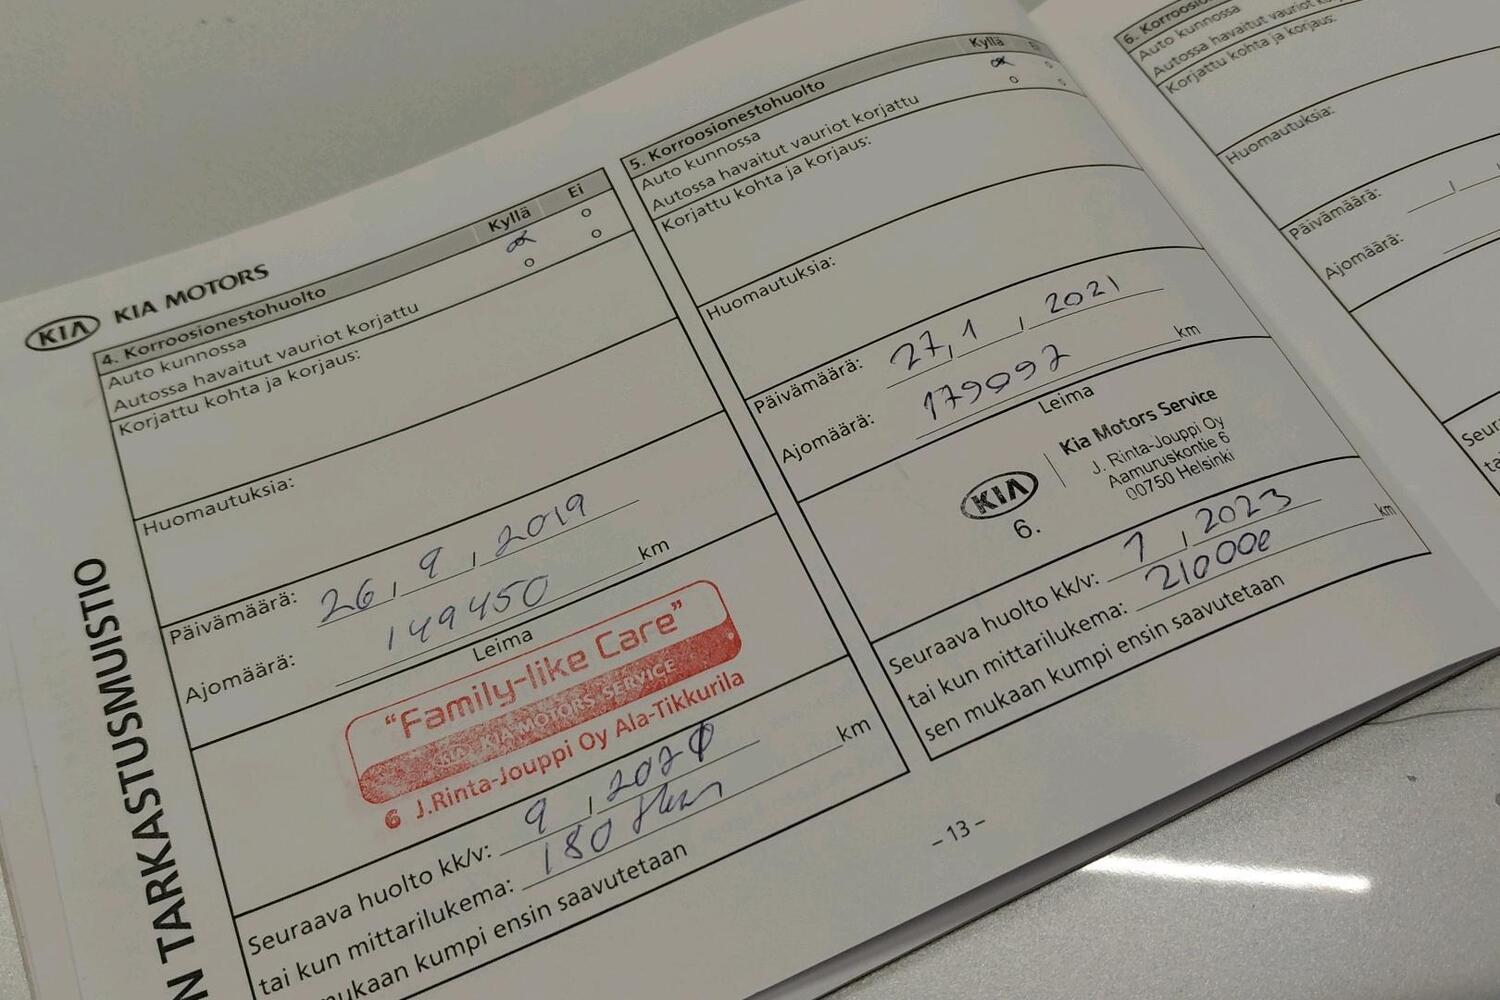 KIA KIA MOTORS
N TARKASTUSMUISTIO
4. Korroosionestohuolto Kyllä Ei
Auto kunnossa
Autossa havaitut vauriot korjattu
Korjattu kohta ja korjaus:
Huomautuksia:
Päivämäärä: 26, 9, 2019
Ajomäärä: 149450 km
Leima
"Family-like Care"
KIA KIA MOTORS SERVICE
6 J.Rinta-Jouppi Oy Ala-Tikkurila
Seuraava huolto kk/v: 9, 202
tai kun mittarilukema: 180 tkm km
mukaan kumpi ensin saavutetaan
5. Korroosionestohuolto Kyllä Ei
Auto kunnossa
Autossa havaitut vauriot korjattu
Korjattu kohta ja korjaus:
Huomautuksia:
Päivämäärä: 27, 1, 2021
Ajomäärä: 179097 km
Leima
KIA
6.
Kia Motors Service
J. Rinta-Jouppi Oy
Aamuruskontie 6
00750 Helsinki
Seuraava huolto kk/v: 1, 2023
tai kun mittarilukema: 210000 km
sen mukaan kumpi ensin saavutetaan
- 13 -
6. Korroosio
Auto kunnossa
Autossa havaitut vauriot
Korjattu kohta ja korjaus:
Huomautuksia:
Päivämäärä:
Ajomäärä:
Seur
ta